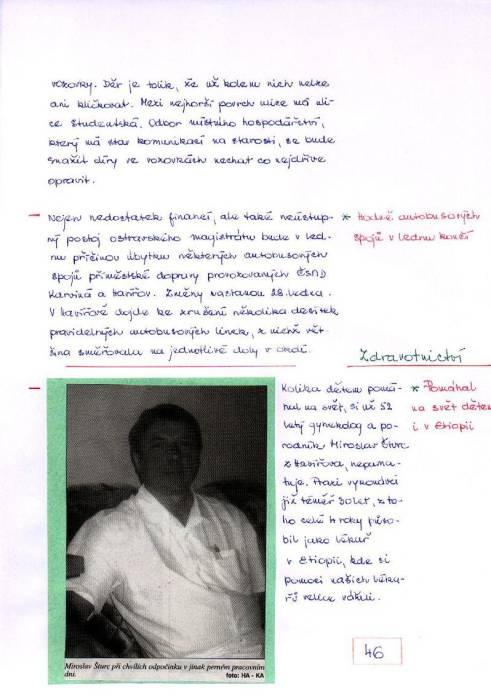 vozovky. Děr je tolik, že už kolem nich nelze
ani kličkovat. Mezi nejhorší povrch ulice má uli-
ce Studentská. Odbor místního hospodářství,
který má stav komunikací na starosti, se bude
snažit díry ve vozovkách nechat co nejdříve
opravit.
Nejen nedostatek financí, ale také neústup-
ný postoj ostravského magistrátu bude v led-
nu příčinou úbytku některých autobusových
spojů příměstské dopravy provozovaných ČSAD
Karviná a Havířov. Změny nastanou 28. ledna.
V Havířově dojde ke zrušení několika desítek
pravidelných autobusových linek, z nichž vět-
šina směřovala na jednotlivé doly v okolí.
* Hodně autobusových
spojů v lednu končí
Zdravotnictví
Kolika dětem pomá-
hal na svět, si už 52
letý gynekolog a po-
rodník Miroslav Šturc
z Havířova, nepama-
tuje. Praxi vykonává
již téměř 30 let, z to-
ho celé 4 roky půso-
bil jako lékař
v Etiopii, kde si
pomoci našich léka-
řů velice vážili.
* Pomáhal
na svět dětem
i v Etiopii
Miroslav Šturc při chvílích odpočinku v jinak perném pracovním
dni.
foto: HA - KA
46